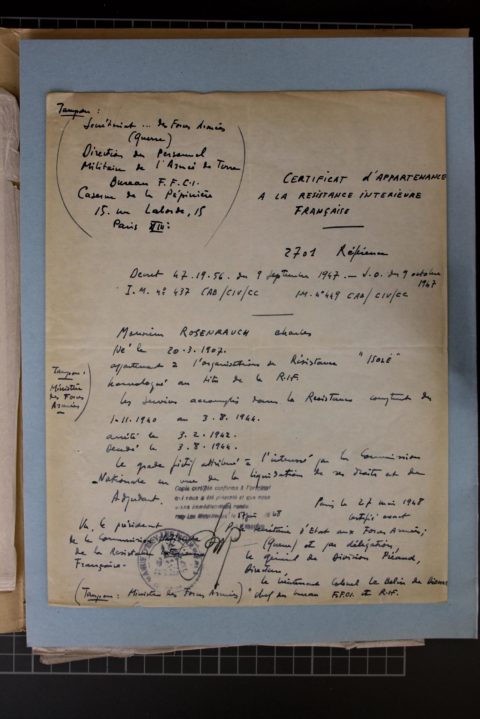 Tampon :
Secrétariat ... des Forces Armées
(Guerre)
Direction du Personnel
Militaire de l'Armée de Terre
Bureau F.F.C.I.
Caserne de la Pépinière
15. rue Laborde, 15
Paris VIII:
CERTIFICAT D'APPARTENANCE
A LA RESISTANCE INTERIEURE
FRANÇAISE
2701 Référence
Decret 47.19.56. du 9 septembre 1947 - J.O. du 9 octobre
1947
I.M. n° 437 CAB/CIV/CC IM. n° 449 CAB/CIV/CC
Monsieur ROSENRAUCH Charles
Né le 20-3-1907.
appartenait à l'organisation de Résistance "ISOLÉ"
homologué au titre de la R.I.F.
Tampon :
Ministère
des Forces
Armées
Les services accomplis dans la Resistance comptent du
1-11-1940 au 3.8.1944.
arrêté le 3.2.1942.
le 3.8.1944.
Le grade fictif attribué à l'intéressé par la Commission
Nationale en vue de la liquidation de ses droits est de
Adjudant.
Copie certifiée conforme à l'original
qui nous a été présenté et que nous
avons immédiatement rendu
Paris le 27 mai 1948
certifié exact
Vu, le président
de la Commission Nationale
de la Resistance Intérieure
Française.
d'Etat aux Forces Armées,
(Guerre) et par délégation
le général de Division
Directeur
le lieutenant Colonel Le
(Tampon : Ministère des Forces Armées) chef du bureau F.F.C.I. et R.I.F.